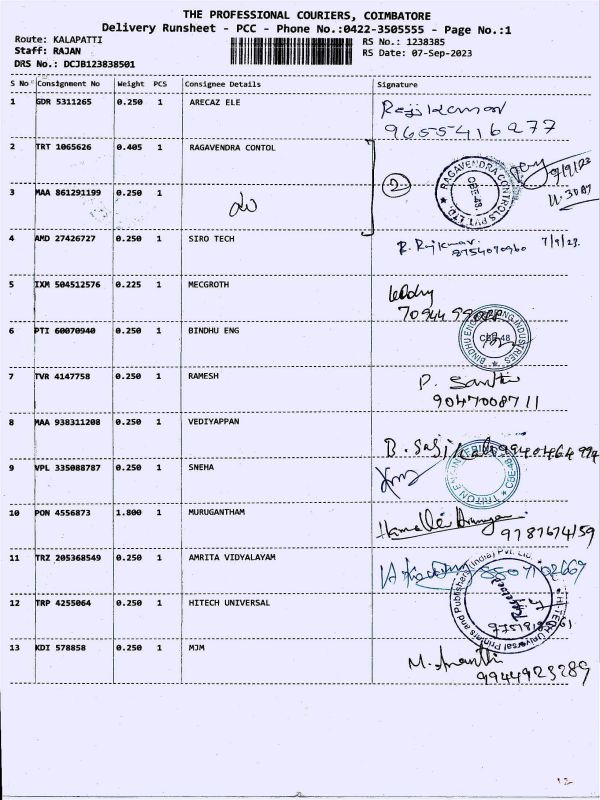 THE PROFESSIONAL COURIERS, COIMBATORE
Delivery Runsheet - PCC - Phone No.:0422-3505555 - Page No.:1
Route: KALAPATTI
RS No.: 1238385
Staff: RAJAN
RS Date: 07-Sep-2023
DRS No.: DCJB123838501
S No Consignment No Weight PCS Consignee Details Signature
1 GDR 5311265 0.250 1 ARECAZ ELE
9655416277
2 TRT 1065626 0.405 1 RAGAVENDRA CONTOL
RAGAVENDRA CONTROLS PVT. LTD. CBE-48.
3 MAA 861291199 0.250 1
4 AMD 27426727 0.250 1 SIRO TECH
R. Rajkumar 7/9/23
8754070960
5 IXM 504512576 0.225 1 MECGROTH
6 PTI 60070940 0.250 1 BINDHU ENG
BINDHU ENGINEERING INDUSTRIES CBE-48
7 TVR 4147758 0.250 1 RAMESH
P. Santhi
9047008711
8 MAA 938311208 0.250 1 VEDIYAPPAN
9 VPL 335088787 0.250 1 SNEHA
10 PON 4556873 1.800 1 MURUGANTHAM
9787674159
11 TRZ 205368549 0.250 1 AMRITA VIDYALAYAM
12 TRP 4255064 0.250 1 HITECH UNIVERSAL
HI-TECH Universal Printers and Publishers (India) Pvt. Ltd.
13 KDI 578858 0.250 1 MJM
M. Ananthi
9944923289